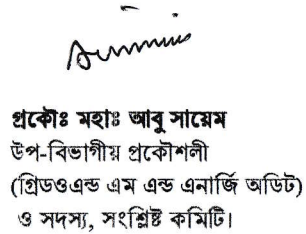 প্রকৌঃ মহাঃ আবু সায়েম
উপ-বিভাগীয় প্রকৌশলী
(গ্রিডওএন্ড এম এন্ড এনার্জি অডিট)
ও সদস্য, সংশ্লিষ্ট কমিটি।